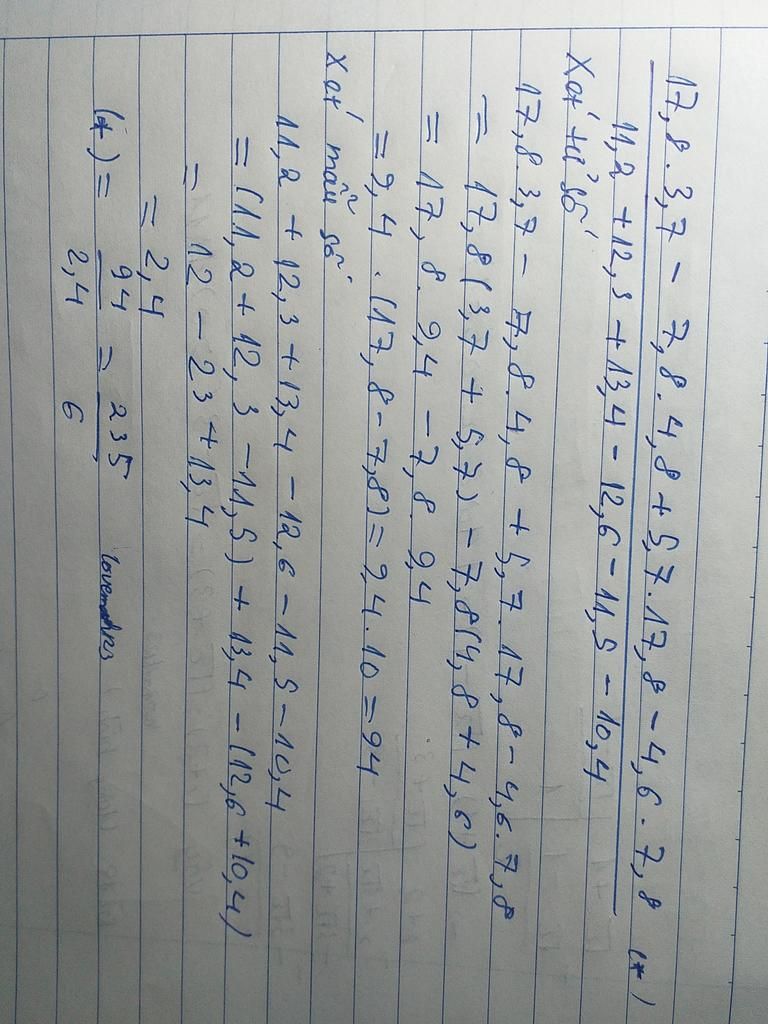 17,8.3,7 - 7,8.4,8 + 5,7.17,8 - 4,6.7,8 (*)
11,2 + 12,3 + 13,4 - 12,6 - 11,5 - 10,4
Xét tử số
17,8.3,7 - 7,8.4,8 + 5,7.17,8 - 4,6.7,8
= 17,8(3,7 + 5,7) - 7,8(4,8 + 4,6)
= 17,8.9,4 - 7,8.9,4
= 9,4.(17,8 - 7,8) = 9,4.10 = 94
Xét mẫu số
11,2 + 12,3 + 13,4 - 12,6 - 11,5 - 10,4
= (11,2 + 12,3 - 11,5) + 13,4 - (12,6 + 10,4)
= 12 - 23 + 13,4
= 2,4
(*) = 94/2,4 = 235/6